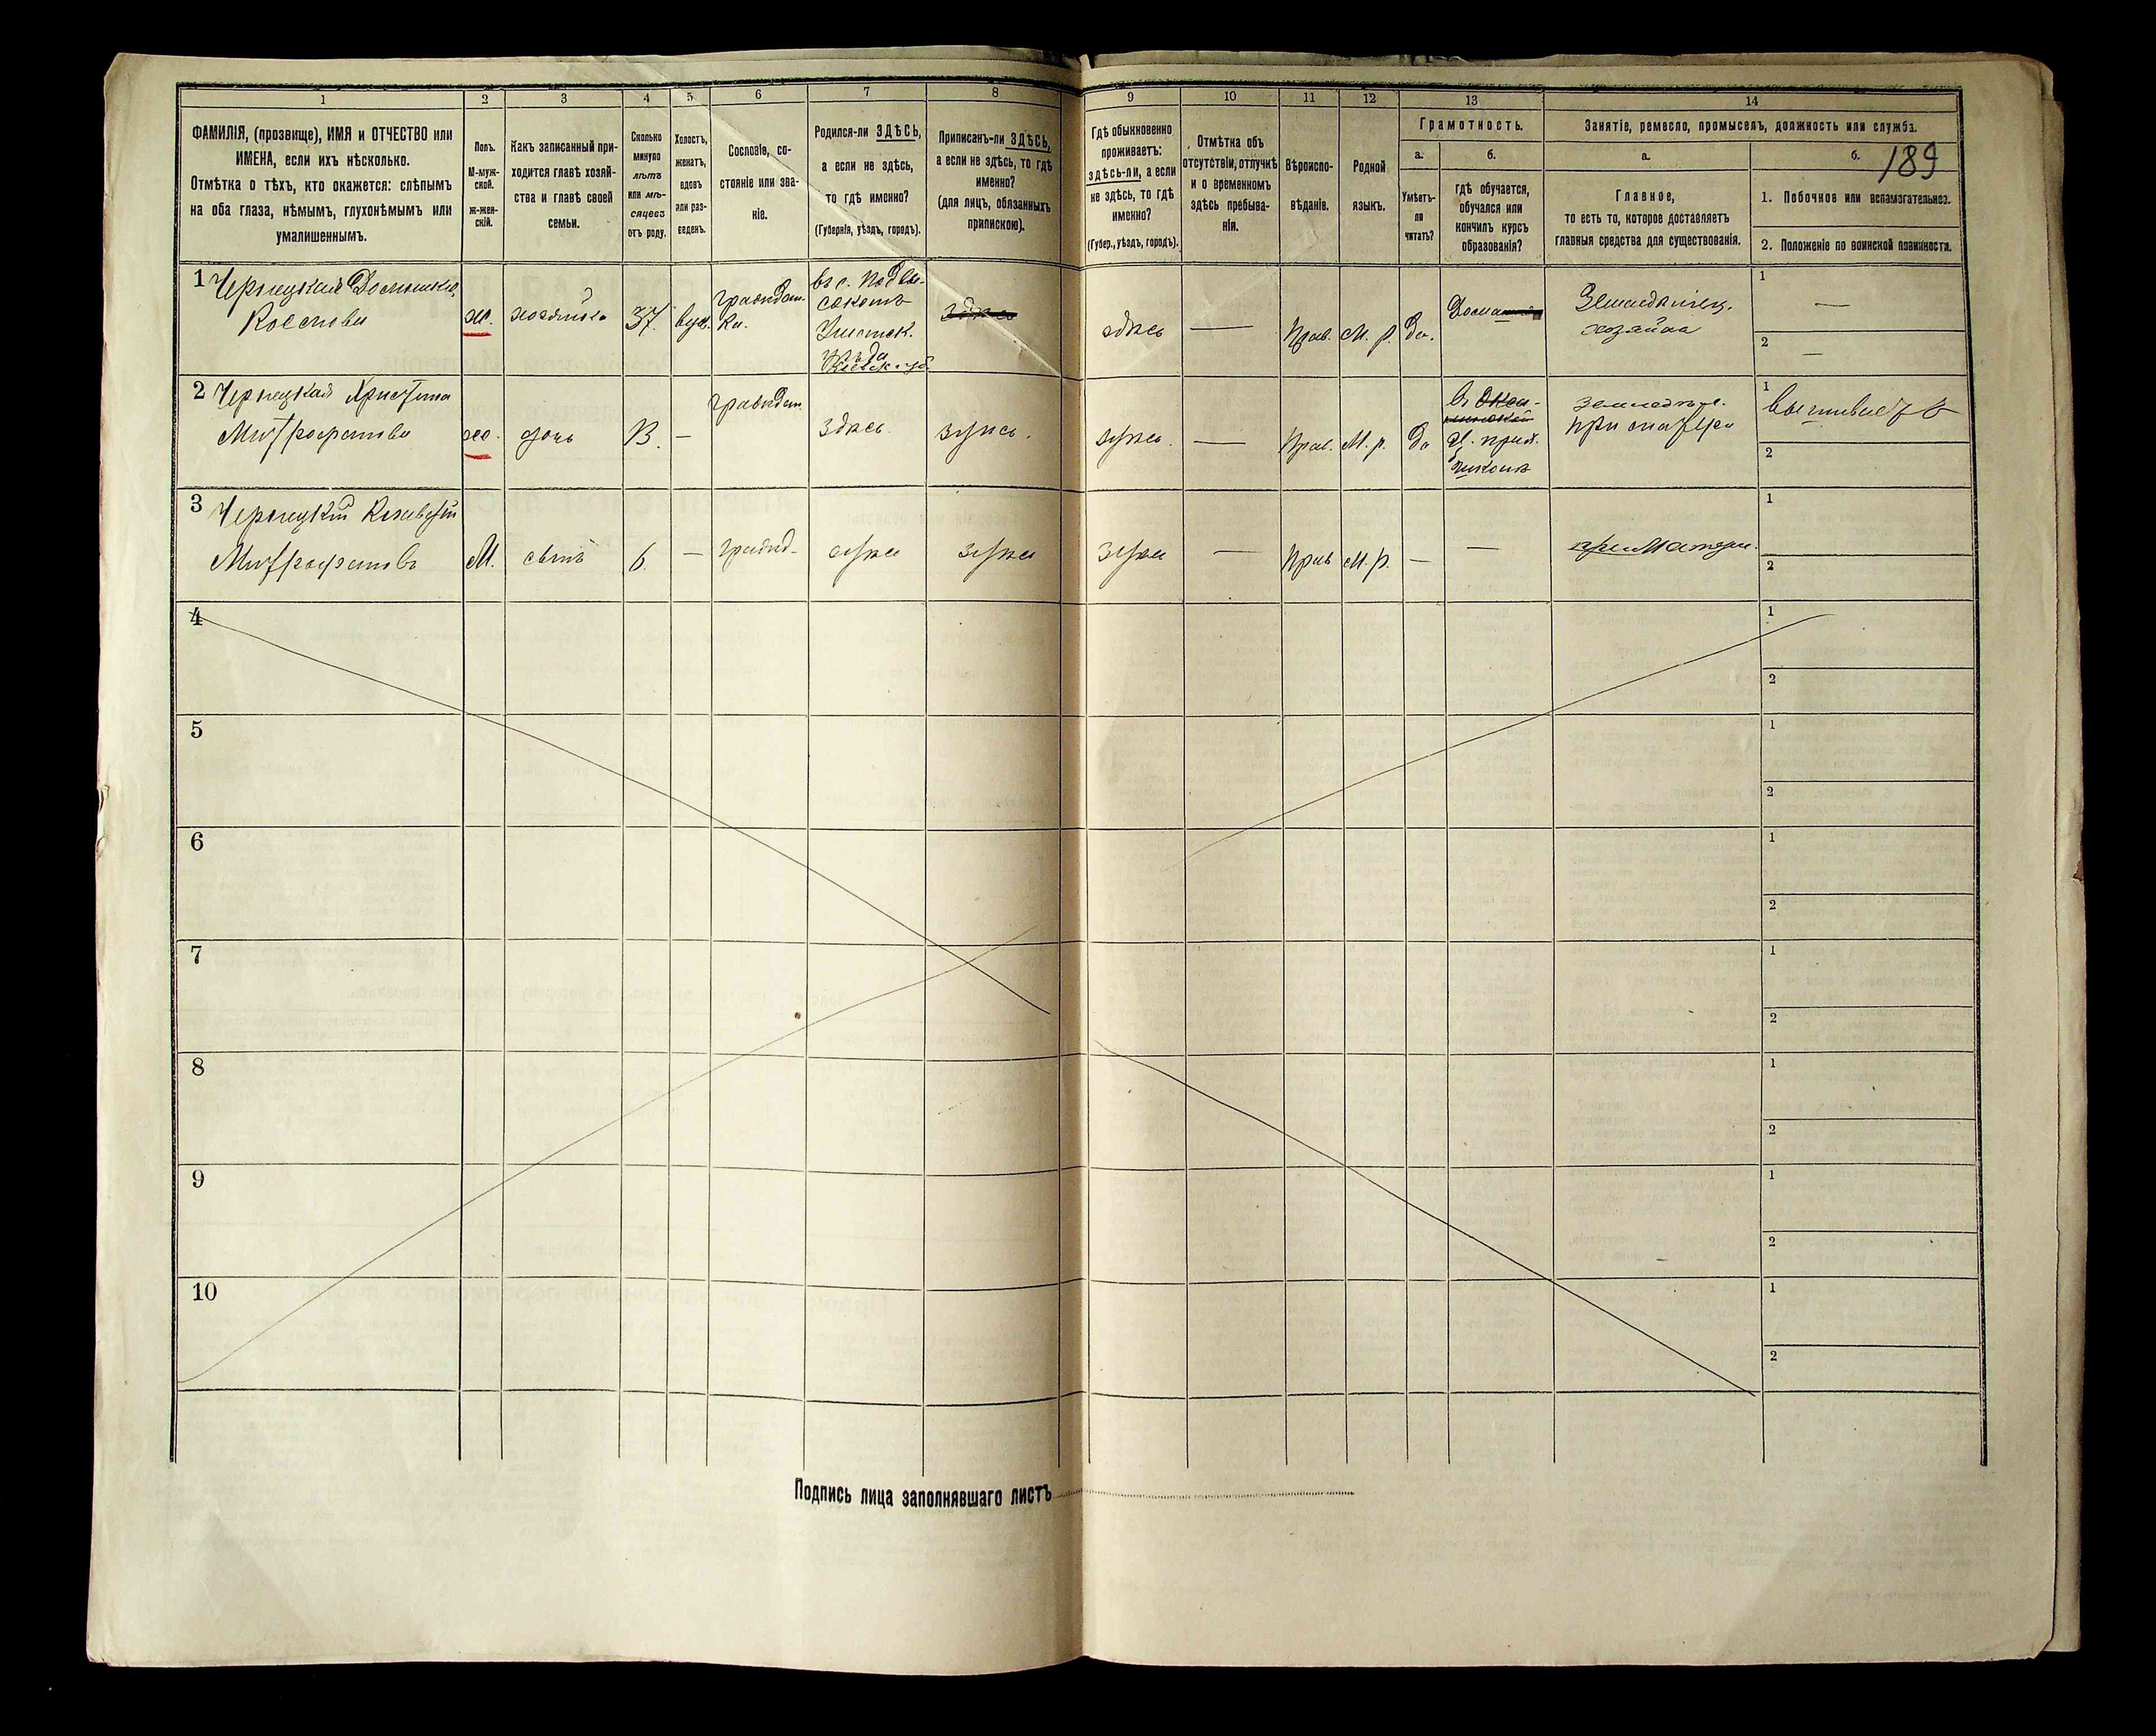 1 2 3 4 5 6 7 8 9 10 11 12 13 14
189
ФАМИЛІЯ, (прозвище), ИМЯ и ОТЧЕСТВО или
ИМЕНА, если ихъ нѣсколько.
Отмѣтка о тѣхъ, кто окажется: слѣпымъ
на оба глаза, нѣмымъ, глухонѣмымъ или
умалишеннымъ.
Полъ.
М-муж-
ской.
ж-жен-
скій.
Какъ записанный при-
ходится главѣ хозяй-
ства и главѣ своей
семьи.
Сколько
минуло
лѣтъ
или мѣ-
сяцевъ
отъ роду.
Холостъ,
женатъ,
вдовъ
или раз-
веденъ.
Сословіе, со-
стояніе или зва-
ніе.
Родился-ли ЗДѢСЬ,
а если не здѣсь,
то гдѣ именно?
(Губернія, уѣздъ, городъ).
Приписанъ-ли ЗДѢСЬ,
а если не здѣсь, то гдѣ
именно?
(для лицъ, обязанныхъ
припискою).
Гдѣ обыкновенно
проживаетъ:
здѣсь-ли, а если
не здѣсь, то гдѣ
именно?
(Губер., уѣздъ, городъ).
Отмѣтка объ
отсутствіи, отлучкѣ
и о временномъ
здѣсь пребыва-
ніи.
Вѣроиспо-
вѣданіе.
Родной
языкъ.
Грамотность.
а.
Умѣетъ-
ли
читать?
б.
гдѣ обучается,
обучался или
кончилъ курсъ
образованія?
Занятіе, ремесло, промыселъ, должность или служба.
а.
Главное,
то есть то, которое доставляетъ
главныя средства для существованія.
б.
1. Побочное или вспомогательное.
2. Положеніе по воинской повинности.
1 Чернецкая
ж.
хозяйка
37.
вдов.
въ с. Подвы-
сокомъ
уѣзда
Кіевск. губ.
здѣсь
здѣсь —
Прав.
М. р.
Да.
хозяйка
1 —
2 —
2 Чернецкая Христина
Митрофанова
ж.
дочь
13.
—
здѣсь.
здѣсь.
здѣсь. —
Прав.
М. р.
Да
школѣ
при матери
1 вышивает
2
3 Чернецкій
Митрофановъ
М.
сынъ
6.
—
здѣсь
здѣсь
здѣсь —
Прав
М. р.
—
—
при Матери.
1
2
4
1
2
5
1
2
6
1
2
7
1
2
8
1
2
9
1
2
10
1
2
Подпись лица заполнявшаго листъ